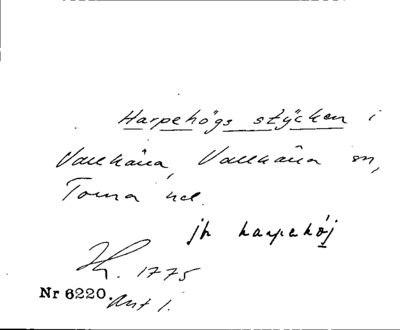 Harpehögs stycken i
Vallkärra, Vallkärra sn,
Torna hd.
jfr harpehöj
1775
Nr 6220. Akt 1.